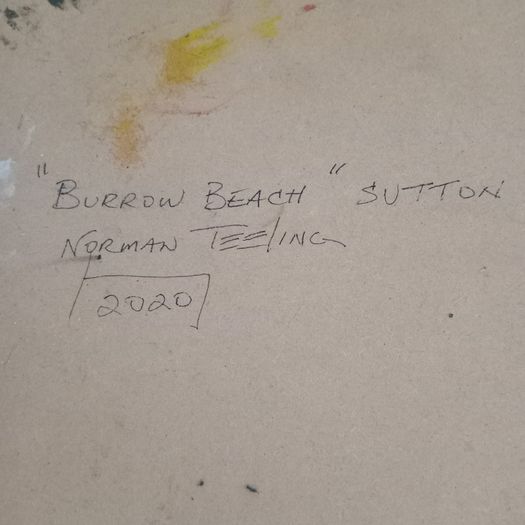 "BURROW BEACH" SUTTON
NORMAN TEELING
2020